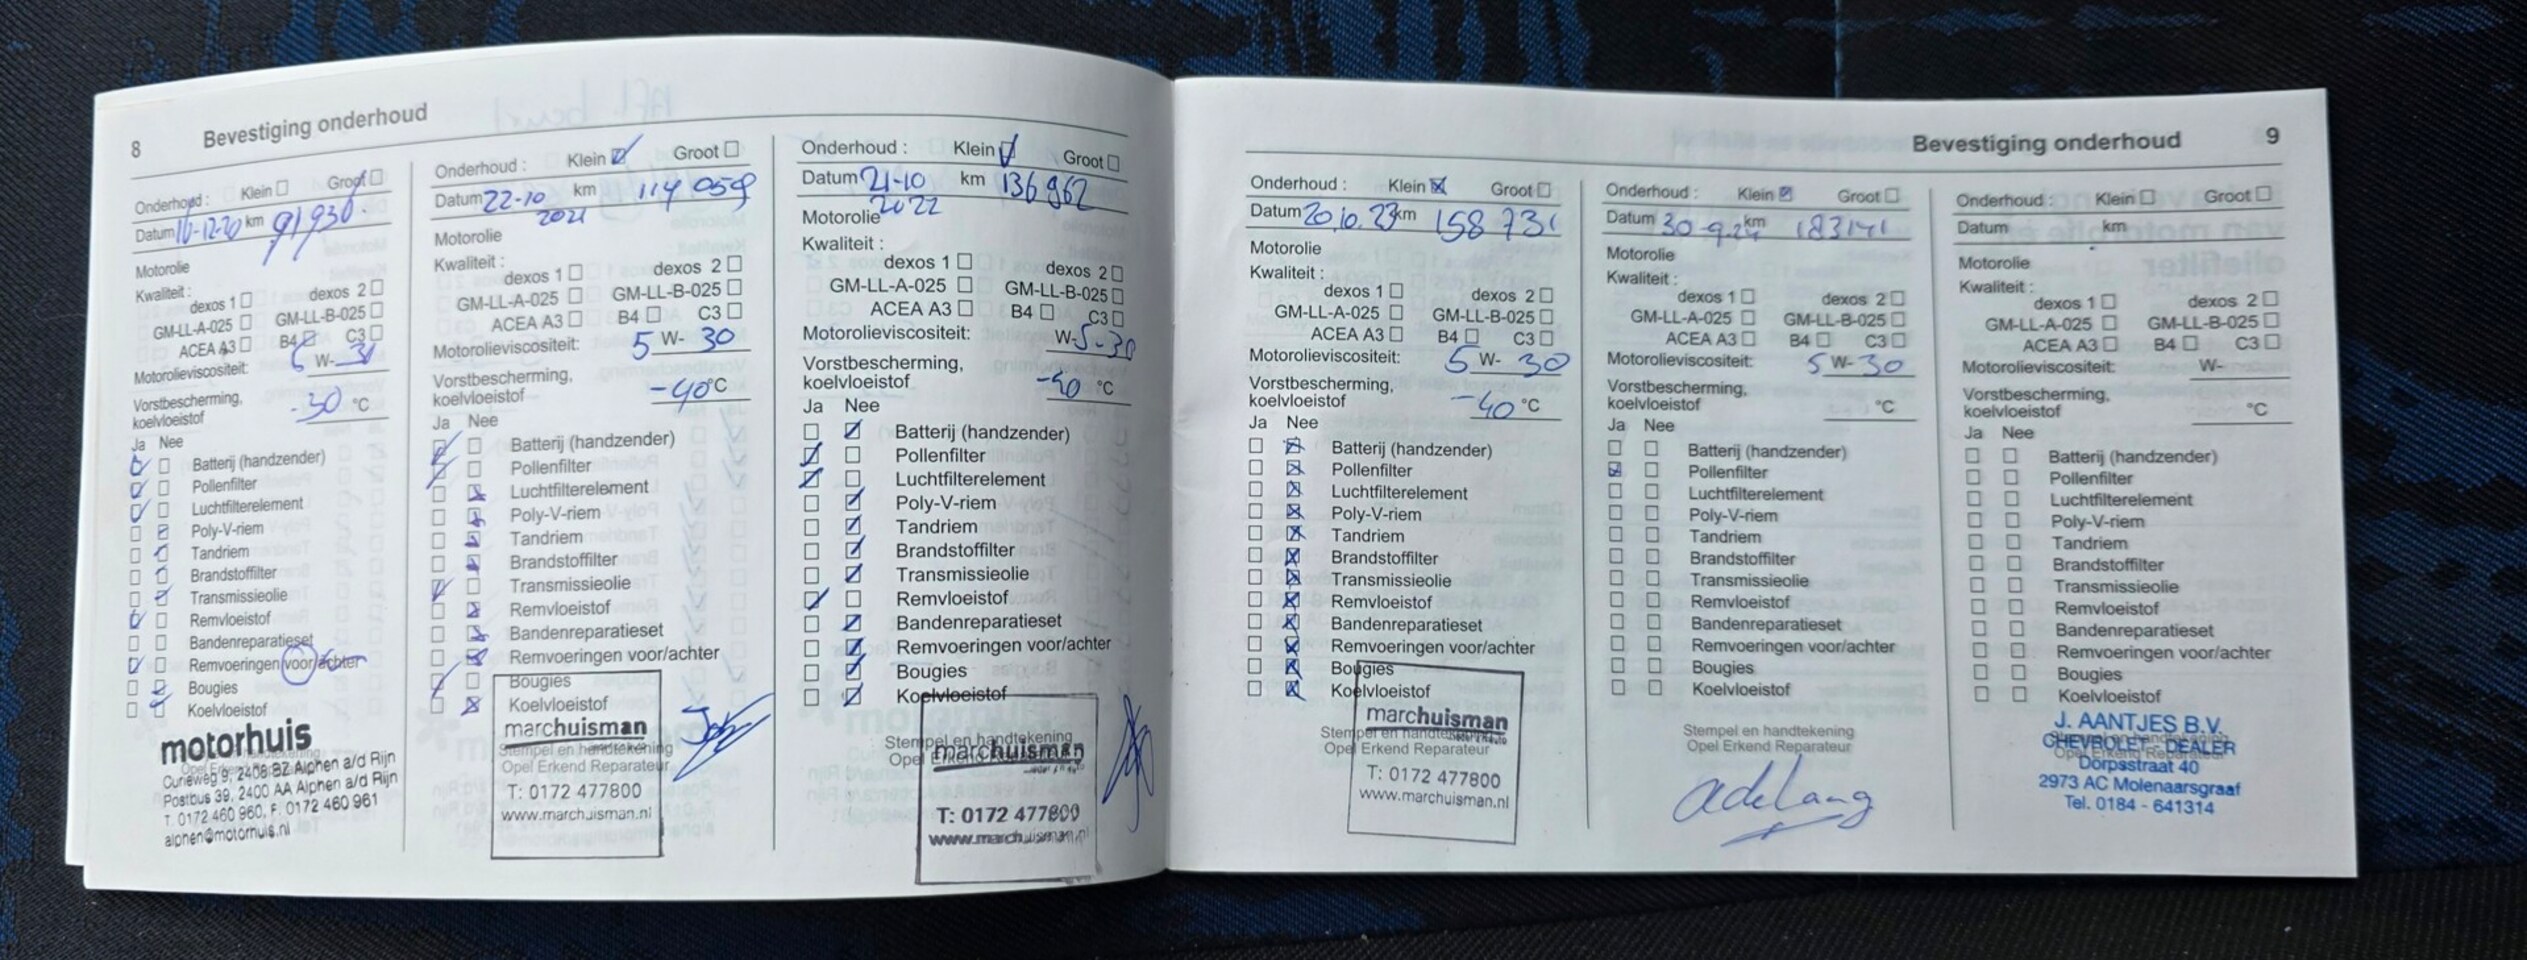 8 Bevestiging onderhoud
Onderhoud : Klein Groot
Datum 16-12-20 km 91930.
Motorolie
Kwaliteit :
dexos 1 dexos 2
GM-LL-A-025 GM-LL-B-025
ACEA A3 B4 C3
Motorolieviscositeit: 5 W- 30
Vorstbescherming,
koelvloeistof -30 °C
Ja Nee
Batterij (handzender)
Pollenfilter
Luchtfilterelement
Poly-V-riem
Tandriem
Brandstoffilter
Transmissieolie
Remvloeistof
Bandenreparatieset
Remvoeringen voor/achter
Bougies
Koelvloeistof
motorhuis
Opel Erkend Reparateur
Curieweg 9, 2408 BZ Alphen a/d Rijn
Postbus 39, 2400 AA Alphen a/d Rijn
T. 0172 460 960, F. 0172 460 961
alphen@motorhuis.nl
Onderhoud : Klein Groot
Datum 22-10 km 114 059
2021
Motorolie
Kwaliteit :
dexos 1 dexos 2
GM-LL-A-025 GM-LL-B-025
ACEA A3 B4 C3
Motorolieviscositeit: 5 W- 30
Vorstbescherming,
koelvloeistof -40 °C
Ja Nee
Batterij (handzender)
Pollenfilter
Luchtfilterelement
Poly-V-riem
Tandriem
Brandstoffilter
Transmissieolie
Remvloeistof
Bandenreparatieset
Remvoeringen voor/achter
Bougies
Koelvloeistof
marchuisman
Stempel en handtekening
Opel Erkend Reparateur
T: 0172 477800
www.marchuisman.nl
Onderhoud : Klein Groot
Datum 21-10 km 136 962
2022
Motorolie
Kwaliteit :
dexos 1 dexos 2
GM-LL-A-025 GM-LL-B-025
ACEA A3 B4 C3
Motorolieviscositeit: W- 5-30
Vorstbescherming,
koelvloeistof -40 °C
Ja Nee
Batterij (handzender)
Pollenfilter
Luchtfilterelement
Poly-V-riem
Tandriem
Brandstoffilter
Transmissieolie
Remvloeistof
Bandenreparatieset
Remvoeringen voor/achter
Bougies
Koelvloeistof
Stempel en handtekening
marchuisman
Opel Erkend Reparateur
T: 0172 477800
www.marchuisman.nl
Bevestiging onderhoud 9
Onderhoud : Klein Groot
Datum 20.10.23 km 158 731
Motorolie
Kwaliteit :
dexos 1 dexos 2
GM-LL-A-025 GM-LL-B-025
ACEA A3 B4 C3
Motorolieviscositeit: 5 W- 30
Vorstbescherming,
koelvloeistof -40 °C
Ja Nee
Batterij (handzender)
Pollenfilter
Luchtfilterelement
Poly-V-riem
Tandriem
Brandstoffilter
Transmissieolie
Remvloeistof
Bandenreparatieset
Remvoeringen voor/achter
Bougies
Koelvloeistof
marchuisman
Stempel en handtekening
Opel Erkend Reparateur
T: 0172 477800
www.marchuisman.nl
Onderhoud : Klein Groot
Datum 30-9-24 km 183141
Motorolie
Kwaliteit :
dexos 1 dexos 2
GM-LL-A-025 GM-LL-B-025
ACEA A3 B4 C3
Motorolieviscositeit: 5 W- 30
Vorstbescherming,
koelvloeistof °C
Ja Nee
Batterij (handzender)
Pollenfilter
Luchtfilterelement
Poly-V-riem
Tandriem
Brandstoffilter
Transmissieolie
Remvloeistof
Bandenreparatieset
Remvoeringen voor/achter
Bougies
Koelvloeistof
Stempel en handtekening
Opel Erkend Reparateur
Onderhoud : Klein Groot
Datum km
Motorolie
Kwaliteit :
dexos 1 dexos 2
GM-LL-A-025 GM-LL-B-025
ACEA A3 B4 C3
Motorolieviscositeit: W-
Vorstbescherming,
koelvloeistof °C
Ja Nee
Batterij (handzender)
Pollenfilter
Luchtfilterelement
Poly-V-riem
Tandriem
Brandstoffilter
Transmissieolie
Remvloeistof
Bandenreparatieset
Remvoeringen voor/achter
Bougies
Koelvloeistof
J. AANTJES B.V.
CHEVROLET - DEALER
Dorpsstraat 40
2973 AC Molenaarsgraaf
Tel. 0184 - 641314